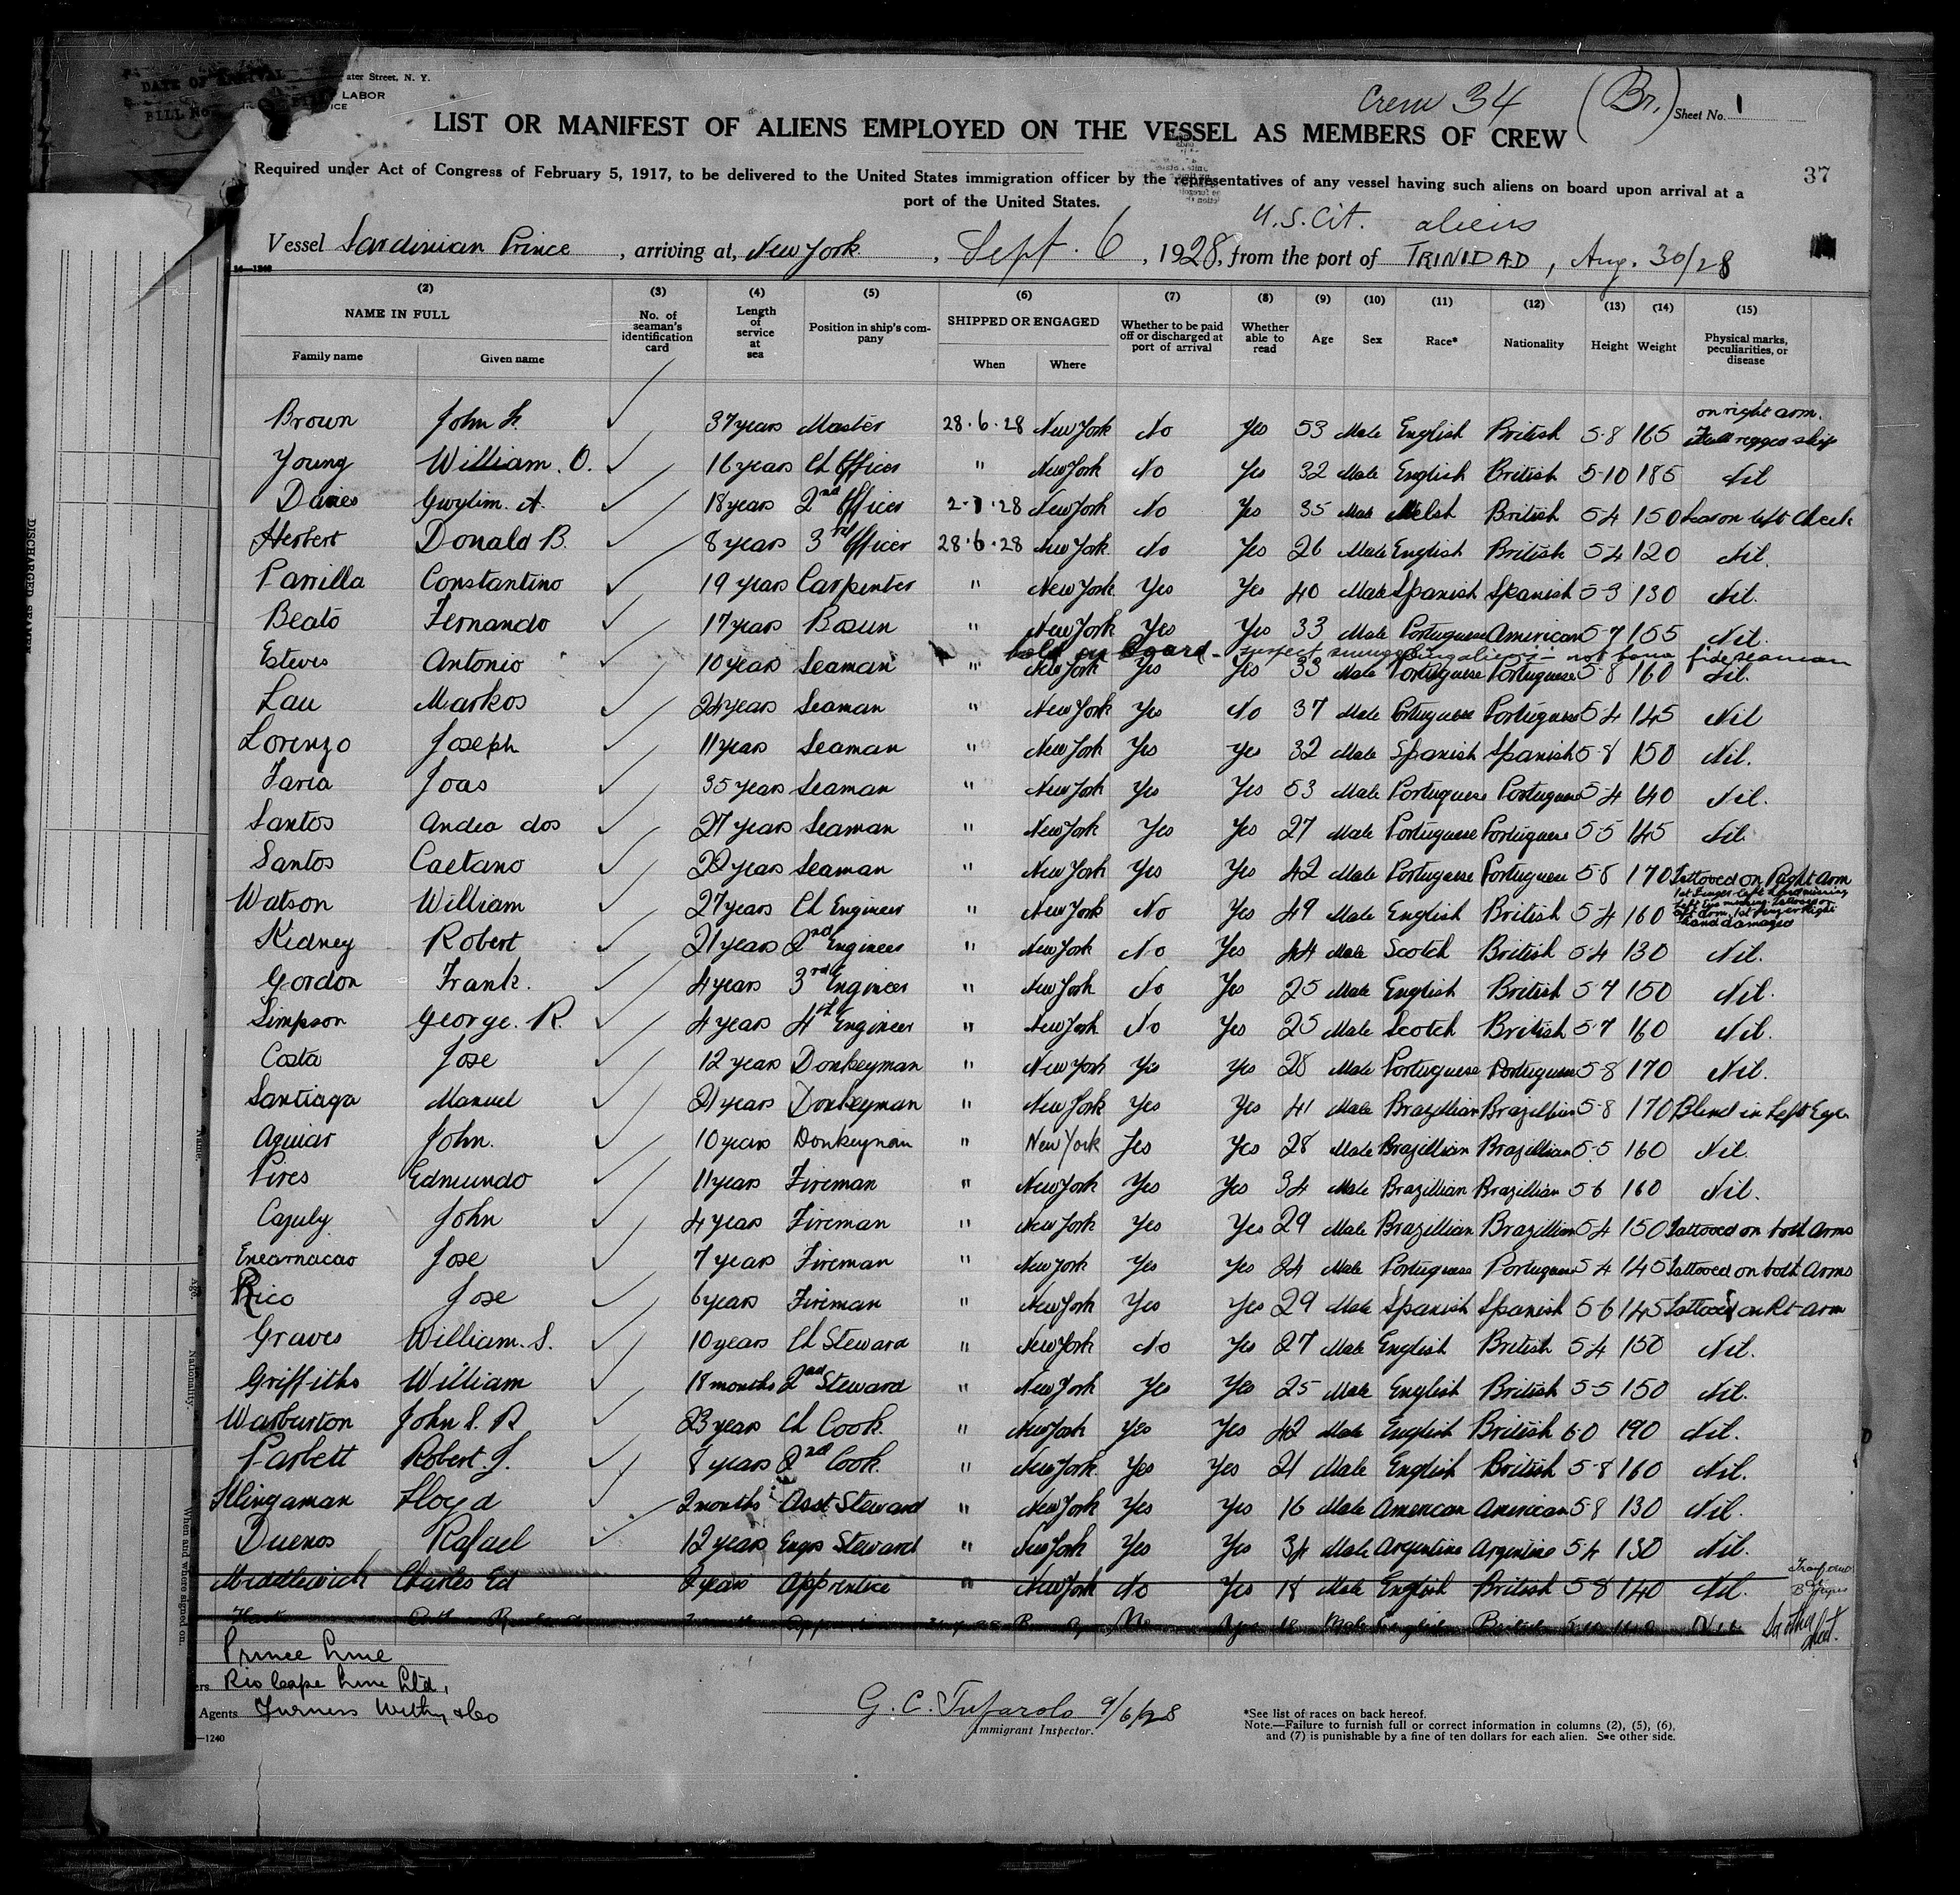 DATE OF ARRIVAL
BILL No.
ater Street, N. Y.
LABOR
ICE
Crew 34 (Br.) Sheet No. 1
LIST OR MANIFEST OF ALIENS EMPLOYED ON THE VESSEL AS MEMBERS OF CREW
37
Required under Act of Congress of February 5, 1917, to be delivered to the United States immigration officer by the representatives of any vessel having such aliens on board upon arrival at a
port of the United States.
U.S. Cit. aliens
Vessel Sardinian Prince, arriving at, New York, Sept. 6, 1928, from the port of TRINIDAD, Aug. 30/28
14—1240
(2) (3) (4) (5) (6) (7) (8) (9) (10) (11) (12) (13) (14) (15)
NAME IN FULL No. of seaman's identification card Length of service at sea Position in ship's company SHIPPED OR ENGAGED Whether to be paid off or discharged at port of arrival Whether able to read Age Sex Race* Nationality Height Weight Physical marks, peculiarities, or disease
Family name Given name When Where
on right arm.
Brown John 37 years Master 28.6.28 New York No Yes 53 Male English British 5-8 165 Full rigged ship
Young William. O. 16 years Ch Officer " New York No Yes 32 Male English British 5-10 185 Nil
Davies Gwylim. A. 18 years 2nd Officer 2.7.28 New York No Yes 35 Male Welsh British 5-4 150 Scar on left Cheek
Herbert Donald B. 8 years 3rd Officer 28.6.28 New York No Yes 26 Male English British 5-4 120 Nil.
Parrilla Constantino 19 years Carpenter " New York Yes Yes 40 Male Spanish Spanish 5-3 130 Nil.
Beato Fernando 17 years Bosun " New York Yes Yes 33 Male Portuguese American 5-7 155 Nil.
hold on board - suspect smuggling aliens - not bona fide seaman
Esteves Antonio 10 years Seaman " New York Yes Yes 33 Male Portuguese Portuguese 5-8 160 Nil.
Lau Markos 24 years Seaman " New York Yes No 37 Male Portuguese Portuguese 5-4 145 Nil
Lorenzo Joseph 11 years Seaman " New York Yes Yes 32 Male Spanish Spanish 5-8 150 Nil.
Faria Joas 35 years Seaman " New York Yes Yes 53 Male Portuguese Portuguese 5-4 140 Nil.
Santos Andea dos 27 years Seaman " New York Yes Yes 27 Male Portuguese Portuguese 5-5 145 Nil.
Santos Caetano 22 years Seaman " New York Yes Yes 42 Male Portuguese Portuguese 5-8 170 Tattooed on Right Arm
Watson William 27 years Ch Engineer " New York No Yes 49 Male English British 5-4 160 1st Finger left hand missing
Left Eye missing. Tattooed on
left Arm. 1st finger Right
hand damaged
Kidney Robert 21 years 2nd Engineer " New York No Yes 44 Male Scotch British 5-4 130 Nil.
Gordon Frank. 4 years 3rd Engineer " New York No Yes 25 Male English British 5-7 150 Nil.
Simpson George. R. 4 years 4th Engineer " New York No Yes 25 Male Scotch British 5-7 160 Nil.
Costa Jose 12 years Donkeyman " New York Yes Yes 28 Male Portuguese Portuguese 5-8 170 Nil.
Santiaga Manuel 21 years Donkeyman " New York Yes Yes 41 Male Brazillian Brazillian 5-8 170 Blind in Left Eye
Aguiar John. 10 years Donkeyman " New York Yes Yes 28 Male Brazillian Brazillian 5-5 160 Nil.
Pires Edmundo 11 years Fireman " New York Yes Yes 34 Male Brazillian Brazillian 5-6 160 Nil.
Cajuly John 4 years Fireman " New York Yes Yes 29 Male Brazillian Brazillian 5-4 150 Tattooed on both Arms
Encarnacao Jose 7 years Fireman " New York Yes Yes 24 Male Portuguese Portuguese 5-4 145 Tattooed on both Arms
Rico Jose 6 years Fireman " New York Yes Yes 29 Male Spanish Spanish 5-6 145 Tattooed on Rt-Arm
Graves William. S. 10 years Ch Steward " New York No Yes 27 Male English British 5-4 150 Nil.
Griffiths William 18 months 2nd Steward " New York Yes Yes 25 Male English British 5-5 150 Nil.
Warburton John S. R 23 years Ch Cook. " New York Yes Yes 42 Male English British 6-0 190 Nil.
Parbett Robert. J. 8 years 2nd Cook. " New York Yes Yes 21 Male English British 5-8 160 Nil.
Klingaman Lloyd 2 months Asst Steward " New York Yes Yes 16 Male American American 5-8 130 Nil.
Duenos Rafael 12 years Engrs Steward " New York Yes Yes 34 Male Argentine Argentine 5-4 130 Nil.
Middlewich Charles Ed 2 years Apprentice " New York No Yes 18 Male English British 5-8 140 Nil.
No Yes 18 Male English British 5-10 Nil
Prince Line
ers Rio Cape Line Ltd,
Agents Furness Withy & Co
—1240
G. C. Tufarolo 9/6/28
Immigrant Inspector.
*See list of races on back hereof.
Note.—Failure to furnish full or correct information in columns (2), (5), (6),
and (7) is punishable by a fine of ten dollars for each alien. See other side.
DISCHARGED SEAMEN
Name.
Age.
Nationality.
When and where signed on.